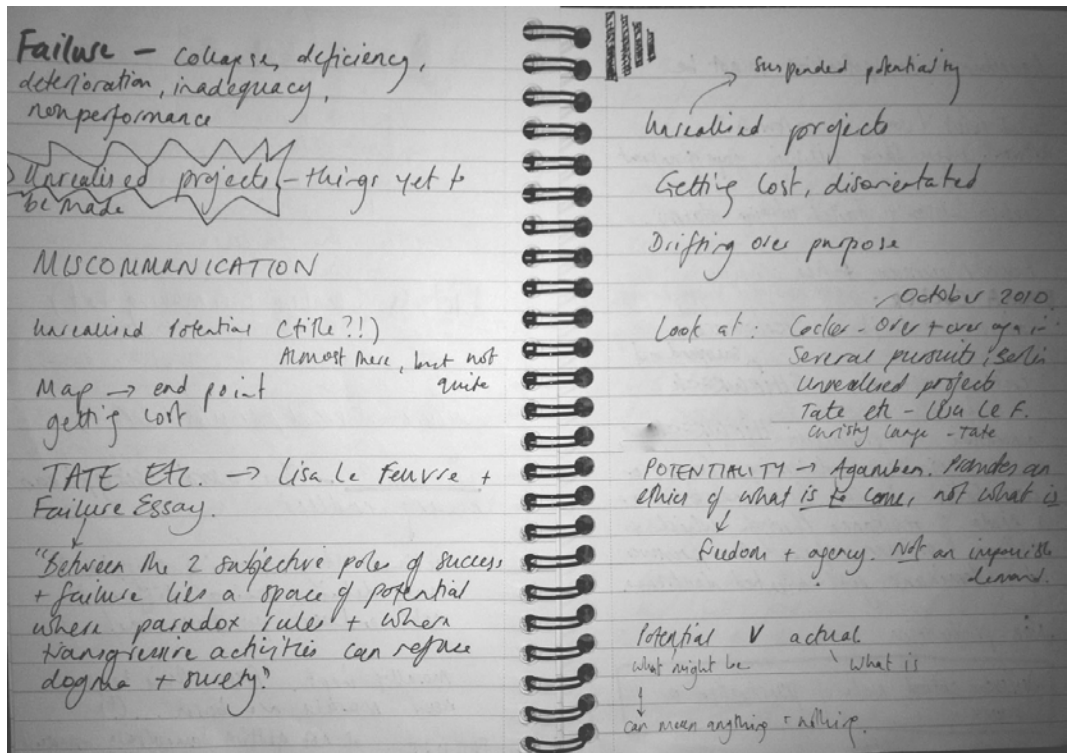 Failure - collapse, deficiency,
deterioration, inadequacy,
nonperformance
Unrealised projects - things yet to
be made
MISCOMMUNICATION
Unrealised Potential (title?!)
Almost there, but not
quite
Map → end point
getting lost
TATE ETC. → Lisa Le Feuvre +
Failure Essay.
"Between the 2 subjective poles of success
+ failure lies a space of potential
where paradox rules + where
transgressive activities can refuse
dogma + surety."
suspended potentiality
Unrealised projects
Getting lost, disorientated
Drifting over purpose
October 2010
Look at: Cocker - Over + over again
Several pursuits: Berlin
Unrealised projects
Tate etc - Lisa Le F.
Christy Lange - Tate
POTENTIALITY → Agamben. Provides an
ethics of what is to come, not what is
freedom + agency. Not an impossible
demand.
Potential V actual
what might be what is
can mean anything + nothing.